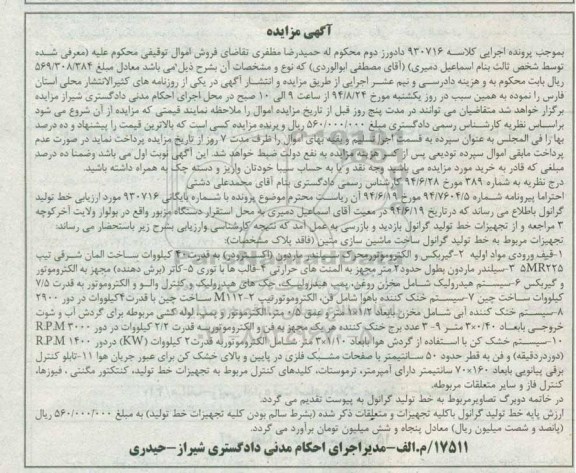 آگهی مزایده
بموجب پرونده اجرایی کلاسه ۹۳۰۷۱۶ دادورز دوم محکوم له حمیدرضا مظفری تقاضای فروش اموال توقیفی محکوم علیه (معرفی شده
توسط شخص ثالث بنام اسماعیل دمیری) (آقای مصطفی ابوالوردی) که نوع و مشخصات آن بشرح ذیل می باشد معادل مبلغ ۵۶۹/۳۰۸/۳۸۴
ریال بابت محکوم به و هزینه دادرسی و نیم عشر اجرایی از طریق مزایده و انتشار آگهی در یکی از روزنامه های کثیرالانتشار محلی استان
فارس را نموده به همین سبب در روز یکشنبه مورخ ۹۴/۸/۲۴ از ساعت ۹ الی ۱۰ صبح در محل اجرای احکام مدنی دادگستری شیراز مزایده
برگزار خواهد شد متقاضیان می توانند در مدت پنج روز قبل از تاریخ مزایده اموال را ملاحظه نمایند قیمتی که مزایده از آن شروع می شود
براساس نظریه کارشناس رسمی دادگستری مبلغ ۵۶۰/۰۰۰/۰۰۰ ریال و برنده مزایده کسی است که بالاترین قیمت را پیشنهاد و ده درصد
بها را فی المجلس به عنوان سپرده به قسمت اجرا تسلیم و بقیه بهای اموال را ظرف مدت ۷ روز از تاریخ مزایده پرداخت نماید در صورت عدم
پرداخت مابقی اموال سپرده تودیعی پس از کسر هزینه مزایده به نفع دولت ضبط خواهد شد. این آگهی نوبت اول می باشد وضمنا ده درصد
مبلغی که قادر به خرید مورد مزایده می باشید وجه نقد و یا به حساب سیبا خودتان واریز و دسته چک به همراه داشته باشید.
درج نظریه به شماره ۳۸۹ مورخ ۹۴/۶/۲۸ کارشناس رسمی دادگستری بنام آقای محمدعلی دشتی
احتراما پیرونامه شماره ۹۴/۷۶۰۴/۵ مورخ ۹۴/۶/۱۹ آن ریاست محترم موضوع پرونده با شماره بایگانی ۹۳۰۷۱۶ مورد ارزیابی خط تولید
گرانول باطلاع می رساند که درتاریخ ۹۴/۶/۱۹ در معیت آقای اسماعیل دمیری به محل استقرار دستگاه مزبور واقع در بولوار ولایت آخرکوچه
۳ مراجعه و از تجهیزات خط تولید گرانول بازدید و بازرسی به عمل آمد که نتیجه کارشناسی وارزیابی بشرح زیر باستحضار می رساند:
تجهیزات مربوط به خط تولید گرانول ساخت ماشین سازی متین (فاقد پلاک مشخصات):
۱-قیف ورودی مواد اولیه ۲-گیربکس و الکتروموتور محرک سیلندر ماردون (اکسترودر) به قدرت ۴۰ کیلووات ساخت المان شرقی تیپ
۵MR۲۲۵ ۳-سیلندر ماردون بطول حدود ۲ متر مجهز به المنت های حرارتی ۴-قالب ها با توری ۵-کاتر (برش دهنده) مجهز به الکتروموتور
و گیربکس ۶-سیستم هیدرولیک شامل مخزن روغن، پمپ هیدرولیک، جک های هیدرولیک و کنترل والو و الکتروموتور به قدرت ۷/۵
کیلووات ساخت چین ۷-سیستم خنک کننده باهوا شامل فن، الکتروموتورتیپ M۱۱۲-۲ ساخت چین با قدرت ۴کیلووات در دور ۲۹۰۰
۸-سیستم خنک کننده آبی شامل مخزن بابعاد ۱×۱/۵ متر و عمق ۰/۵ متر، الکتروموتور و پمپ آب و لوله کشی مربوطه برای گردش آب و شوت
خروجی بابعاد ۰/۴۰×۳ متر ۹- ۳ عدد برج خنک کننده هریک مجهز به فن و الکتروموتور به قدرت ۲/۲ کیلووات در دور ۳۰۰۰ R.P.M
۱۰-سیستم خشک کن با استفاده از گردش هوا بابعاد ۱/۱۰×۳ متر شامل الکتروموتور به قدرت ۲ کیلووات (KW) در دور ۱۴۰۰ R.P.M
(دوردردقیقه) و فن به قطر حدود ۵۰ سانتیمتر با صفحات مشبک فلزی در پایین و بالای خشک کن برای عبور جریان هوا ۱۱-تابلو کنترل
برقی پیانویی بابعاد ۱۶۰×۷۰ سانتیمتر دارای آمپرمتر، ترموستات، کلیدهای کنترل مربوط به تجهیزات خط تولید، کنتکتور مگنتی ، فیوزها،
کنترل فاز و سایر متعلقات مربوطه.
در خاتمه دوبرگ تصاویرمربوط به خط تولید گرانول به پیوست تقدیم می گردد.
ارزش پایه خط تولید گرانول باکلیه تجهیزات و متعلقات ذکر شده (بشرط سالم بودن کلیه تجهیزات خط تولید) به مبلغ ۵۶۰/۰۰۰/۰۰۰ ریال
(پانصد و شصت میلیون ریال) معادل پنجاه و شش میلیون تومان برآورد می گردد.
۱۷۵۱۱/م.الف-مدیراجرای احکام مدنی دادگستری شیراز-حیدری